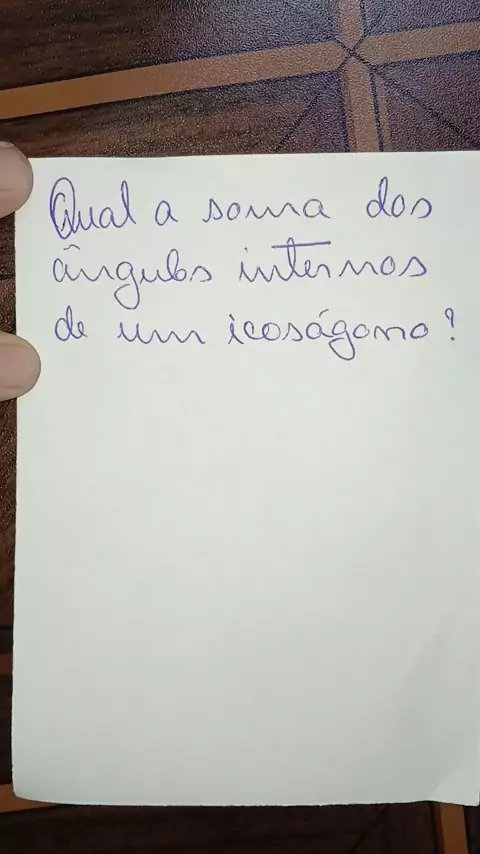 Qual a soma dos
ângulos internos
de um icoságono?